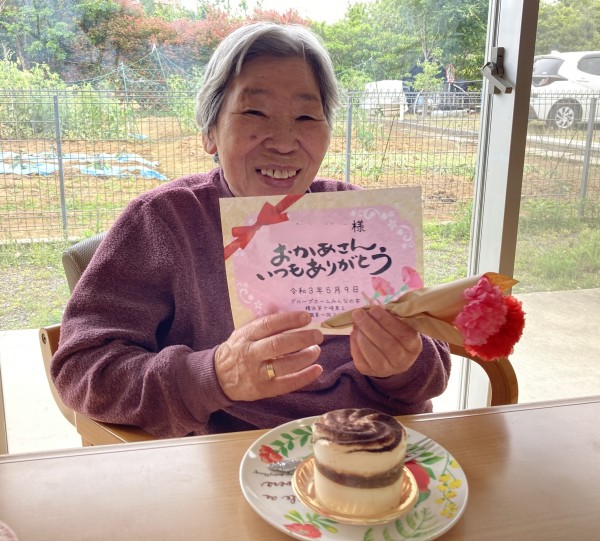 様
おかあさん
いつもありがとう
令和3年5月9日
グループホームみんなの家